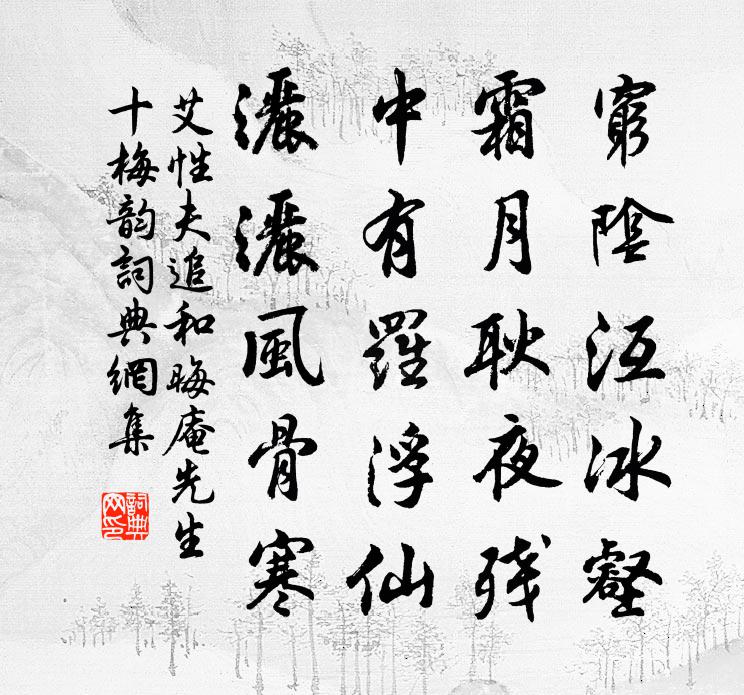 窮陰沍冰壑
霜月耿夜残
中有羅浮仙
灑灑風骨寒
艾性夫追和晦庵先生
十梅韵詞典網集
詞典网印